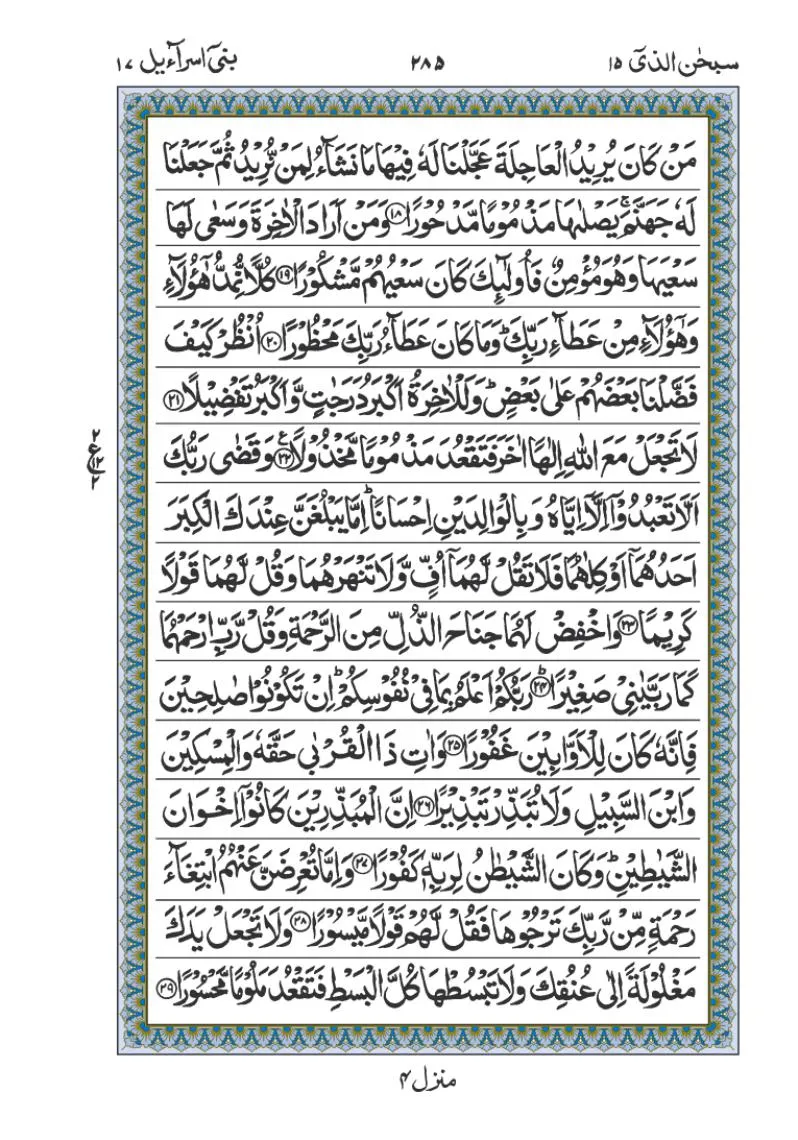 سبحٰن الذیٓ ۱۵
۲۸۵
بنیٓ اسرآءیل ۱۷
مَنۡ كَانَ يُرِيۡدُ الۡعَاجِلَةَ عَجَّلۡنَا لَهٗ فِيۡهَا مَا نَشَآءُ لِمَنۡ نُّرِيۡدُ ثُمَّ جَعَلۡنَا
لَهٗ جَهَنَّمَ‌ۚ يَصۡلٰٮهَا مَذۡمُوۡمًا مَّدۡحُوۡرًا ۱۸ وَمَنۡ اَرَادَ الۡاٰخِرَةَ وَسَعٰى لَهَا
سَعۡيَهَا وَهُوَ مُؤۡمِنٌ فَاُولٰۤٮِٕكَ كَانَ سَعۡيُهُمۡ مَّشۡكُوۡرًا ۱۹ كُلًّا نُّمِدُّ هٰٓؤُلَاۤءِ
وَهٰٓؤُلَاۤءِ مِنۡ عَطَآءِ رَبِّكَ‌ؕ وَمَا كَانَ عَطَآءُ رَبِّكَ مَحۡظُوۡرًا ۲۰ اُنْظُرۡ كَيۡفَ
فَضَّلۡنَا بَعۡضَهُمۡ عَلٰى بَعۡضٍ‌ؕ وَلَلۡاٰخِرَةُ اَكۡبَرُ دَرَجٰتٍ وَّاَكۡبَرُ تَفۡضِيۡلًا ۲۱
لَا تَجۡعَلۡ مَعَ اللّٰهِ اِلٰهًا اٰخَرَ فَتَقۡعُدَ مَذۡمُوۡمًا مَّخۡذُوۡلًا ۲۲ وَقَضٰى رَبُّكَ
اَلَّا تَعۡبُدُوۡۤا اِلَّاۤ اِيَّاهُ وَبِالۡوَالِدَيۡنِ اِحۡسَانًا‌ؕ اِمَّا يَـبۡلُغَنَّ عِنۡدَكَ الۡكِبَرَ
اَحَدُهُمَاۤ اَوۡ كِلٰهُمَا فَلَا تَقُلْ لَّهُمَاۤ اُفٍّ وَّلَا تَنۡهَرۡهُمَا وَقُلْ لَّهُمَا قَوۡلًا
كَرِيۡمًا ۲۳ وَاخۡفِضۡ لَهُمَا جَنَاحَ الذُّلِّ مِنَ الرَّحۡمَةِ وَقُلْ رَّبِّ ارۡحَمۡهُمَا
كَمَا رَبَّيٰنِىۡ صَغِيۡرًا ؕ ۲۴ رَبُّكُمۡ اَعۡلَمُ بِمَا فِىۡ نُفُوۡسِكُمۡ‌ؕ اِنۡ تَكُوۡنُوۡا صٰلِحِيۡنَ
فَاِنَّهٗ كَانَ لِلۡاَوَّابِيۡنَ غَفُوۡرًا ۲۵ وَاٰتِ ذَا الۡقُرۡبٰى حَقَّهٗ وَالۡمِسۡكِيۡنَ
وَابۡنَ السَّبِيۡلِ وَلَا تُبَذِّرۡ تَبۡذِيۡرًا ۲۶ اِنَّ الۡمُبَذِّرِيۡنَ كَانُوۡۤا اِخۡوَانَ
الشَّيٰطِيۡنِ‌ؕ وَكَانَ الشَّيۡطٰنُ لِرَبِّهٖ كَفُوۡرًا ۲۷ وَاِمَّا تُعۡرِضَنَّ عَنۡهُمُ ابۡتِغَآءَ
رَحۡمَةٍ مِّنۡ رَّبِّكَ تَرۡجُوۡهَا فَقُلْ لَّهُمۡ قَوۡلًا مَّيۡسُوۡرًا ۲۸ وَلَا تَجۡعَلۡ يَدَكَ
مَغۡلُوۡلَةً اِلٰى عُنُقِكَ وَلَا تَبۡسُطۡهَا كُلَّ الۡبَسۡطِ فَتَقۡعُدَ مَلُوۡمًا مَّحۡسُوۡرًا ۲۹
۲
ع
۱۲
۲
منزل ۴